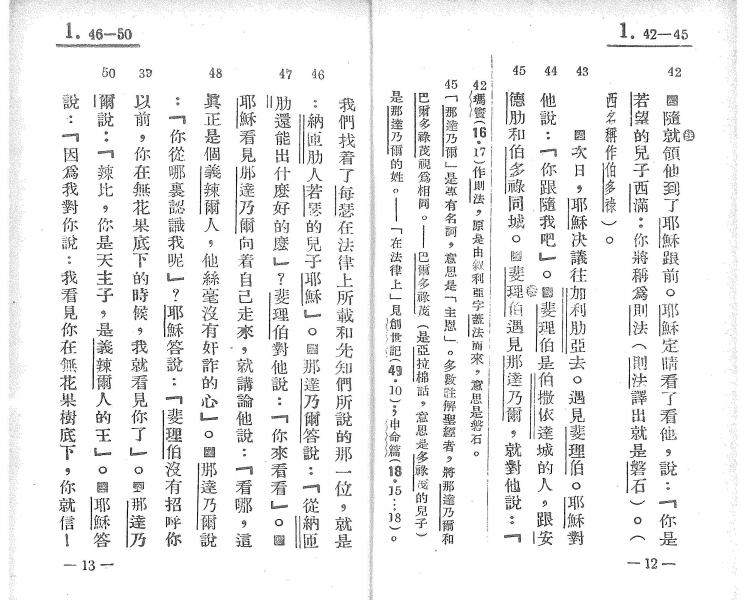 1. 42—45
42
隨就領他到了耶穌跟前。耶穌定睛看了看他，說：『你是
若望的兒子西滿：你將稱爲則法（則法譯出就是磐石）。（
西名稱作伯多祿）。
43
次日，耶穌決議往加利肋亞去。遇見斐理伯。耶穌對
44
他說：『你跟隨我吧』。斐理伯是伯撒依達城的人，跟安
45
德肋和伯多祿同城。斐理伯遇見那達乃爾，就對他說：『
42 瑪竇(16.17)作則法，原是由敘利亞字蓋法而來，意思是磐石。
45「那達乃爾」是專有名詞，意思是「主恩」。多數註解聖經者，將那達乃爾和
巴爾多祿茂視爲相同。——巴爾多祿茂（是亞拉棉話，意思是多祿茂的兒子）
是那達乃爾的姓。——「在法律上」見創世記(49.10)；申命篇(18.15…18)。
—12—
1. 46—50
我們找着了每瑟在法律上所載和先知們所說的那一位，就是
46
：納匝肋人若瑟的兒子耶穌』。那達乃爾答說：『從納匝
47
肋還能出什麼好的麼』？斐理伯對他說：『你來看看』。
耶穌看見那達乃爾向着自己走來，就講論他說：『看哪，這
48
眞正是個義辣爾人，他絲毫沒有奸詐的心』。那達乃爾說
：『你從哪裏認識我呢』？耶穌答說：『斐理伯沒有招呼你
39
以前，你在無花果底下的時候，我就看見你了』。那達乃
50
爾說：『辣比，你是天主子，是義辣爾人的王』。耶穌答
說：『因爲我對你說：我看見你在無花果樹底下，你就信！
—13—